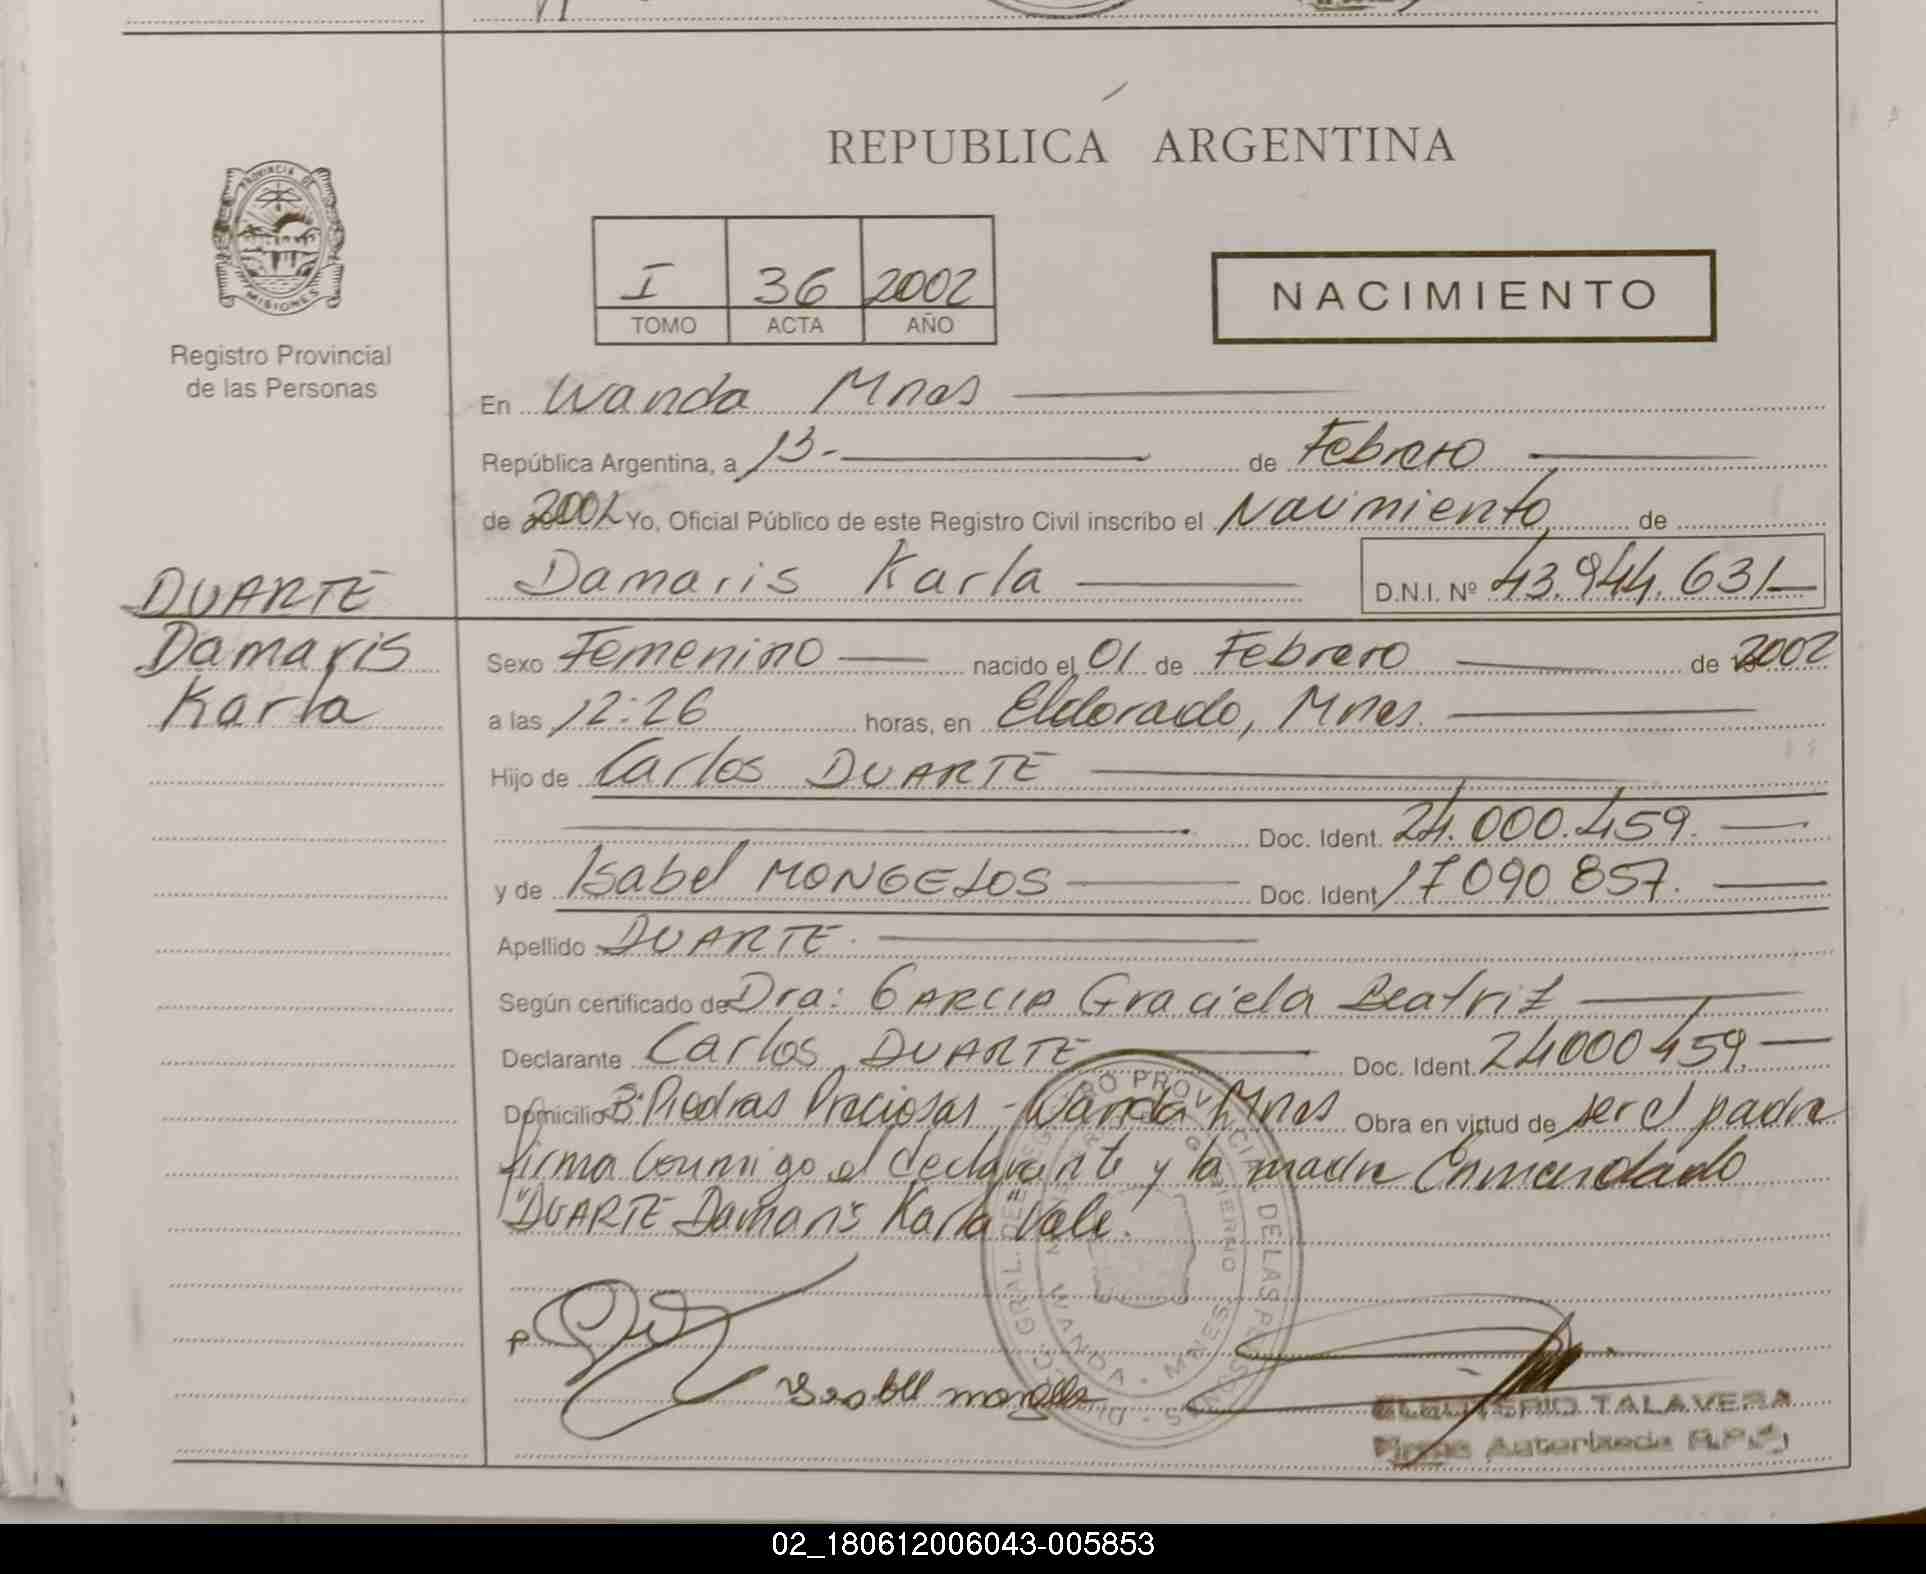 REPUBLICA ARGENTINA
PROVINCIA DE
MISIONES
Registro Provincial
de las Personas
I 36 2002
TOMO ACTA AÑO
NACIMIENTO
En Wanda Mnes
República Argentina, a 13- de Febrero
de 2002 Yo, Oficial Público de este Registro Civil inscribo el Nacimiento de
Damaris Karla D.N.I. Nº 43.944.631
DUARTE
Damaris
Karla
Sexo Femenino nacido el 01 de Febrero de 2002
a las 12:26 horas, en Eldorado, Mnes.
Hijo de Carlos DUARTE
Doc. Ident. 24.000.459.
y de Isabel MONGELOS Doc. Ident 17090857.
Apellido DUARTE.
Según certificado de Dra: GARCIA Graciela Beatriz
Declarante Carlos DUARTE Doc. Ident. 24000459.
Domicilio Bº Piedras Preciosas - Wanda Mnes Obra en virtud de ser el padre
firma conmigo el declarante y la madre Enmendado
"DUARTE Damaris Karla Vale."
WANDA - MNES
ELEUTERIO TALAVERA
Firma Autorizada R.P.P.
02_180612006043-005853